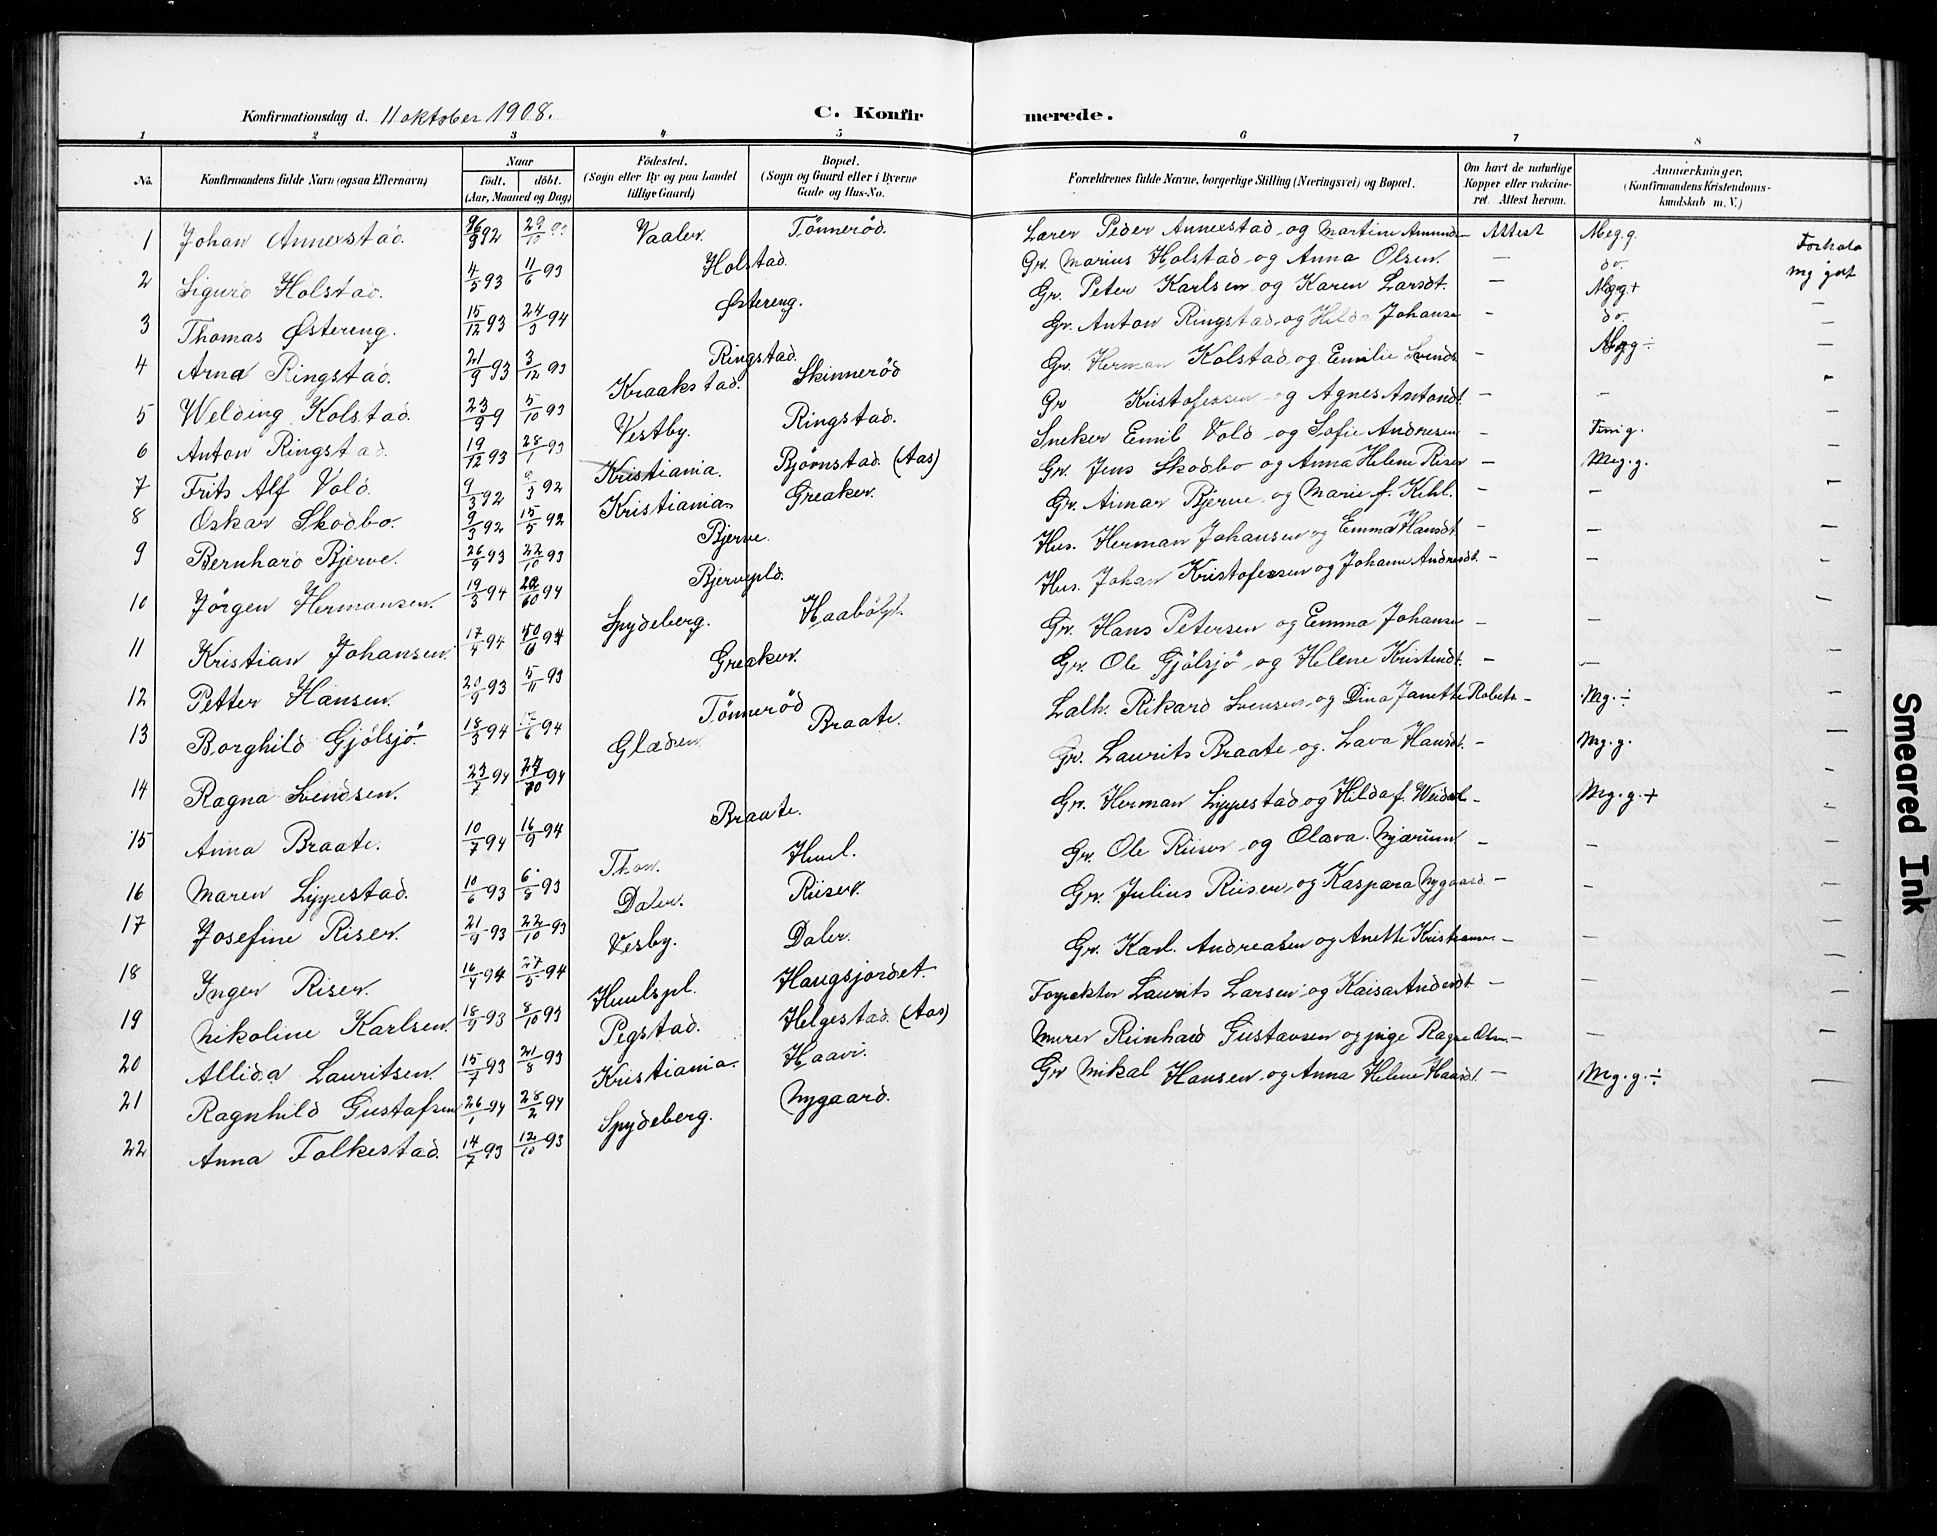 Konfirmationsdag d. 11 oktober 1908.
C. Konfirmerede.
1 2 3 4 5 6 7 8
No.
Konfirmandens fulde Navn (ogsaa Efternavn)
Naar
født. døbt.
(Aar, Maaned og Dag)
Fødested.
(Sogn eller By og paa Landet
tillige Gaard)
Bopæl.
(Sogn og Gaard eller i Byerne
Gade og Hus-No.
Forældrenes fulde Navne, borgerlige Stilling (Næringsvei) og Bopæl.
Om havt de naturlige
Kopper eller vakcine-
ret. Attest herom.
Anmærkninger,
(Konfirmandens Kristendoms-
kundskab m. V.)
1 Johan Annexstad. 92 29/10 Vaaler. Tönneröd. Lærer Peder Annexstad og Martine Amunds Attest Meg.g. Forhold
2 Sigurd Holstad. 4/5 93 11/6 93 Holstad. Gr. Marius Holstad og Anna Olsen. — do. mg godt
3 Thomas Østereng. 15/12 93 24/3 94 Østereng. Gr. Peter Karlsen og Karen Larsdt. — —
4 Arna Ringstad. 21/9 93 3/12 93 Ringstad. Gr. Anton Ringstad og Hilda Johanse - do. —
5 Welding Kolstad. 23/9 9 5/10 93 Kraakstad. Skinneröd Gr. Herman Kolstad og Emilie Svends - —
6 Anton Ringstad. 19/12 93 28/1 93 Vestby. Ringstad. Gr Kristofersen og Agnes Antondt. - -
7 Frits Alf Vold. 9/3 92 92 Kristiania. Björnstad. (Aas) Sneker Emil Vold og Sofie Andresen -
8 Oskar Skodbo. 9/3 92 15/5 92 Kristiania Greaker. Gr. Jens Skodbo og Anna Helene Riser - Meg.g.
9 Bernhard Bjerve. 26/9 93 22/10 93 Bjerve. Gr. Aimar Bjerve og Marie f. Kihl. - -
10 Jörgen Hermansen. 19/3 94 94 Bjervepld. Hus. Herman Johansen og Emma Hansdt. - —
11 Kristian Johansen. 17/4 94 94 Spydeberg. Haabölpl. Hus. Johan Kristofersen og Johanne Andresdt. - —
12 Petter Hansen. 20/9 93 5/11 93 Greaker. Gr. Hans Petersen og Emma Johanse - —
13 Borghild Gjölsjö. 18/3 94 94 Tönneröd Gr. Ole Gjölsjö og Helene Kristendt. - —
14 Ragna Svendsen. 23/7 94 94 Braate. Lalh. Rikard Svensen og Dina Janette Robets - Mg. ÷
15 Anna Braate. 10/7 94 16/9 94 Braate. Gr. Laurits Braate og Lava Hansdt. - Mg. g.
16 Maren Lippestad. 10/6 93 6/8 93 Huul. Gr. Herman Lippestad og Hilda f. - Mg. g. +
17 Josefine Riser. 21/9 93 22/10 93 Daler. Riiser. Gr. Ole Riiser og Olava Mjærum - —
18 Inger Riser. 16/4 94 27/5 94 Vesby. Daler. Gr. Julius Riiser og Kaspara Nygaard - —
19 Nikoline Karlsen. 18/9 93 8/10 93 Huulspl. Haugsjordet. Gr. Karl Andreasen og Anette - —
20 Allida Lauritsen. 15/7 93 21/8 93 Pegstad. Helgestad. (Aas) Laurits Larsen og Kaisa Andersdt - —
21 Ragnhild Gustafsen 26/1 94 28/2 94 Kristiania. Haavi. Murer Reinhard Gustavsen og pige Ragna Olsn. - —
22 Anna Folkestad. 14/7 93 12/10 93 Spydeberg. Nygaard. Gr Mikal Hansen og Anna Helene Hansdt. - Mg. g. ÷
Smeared Ink